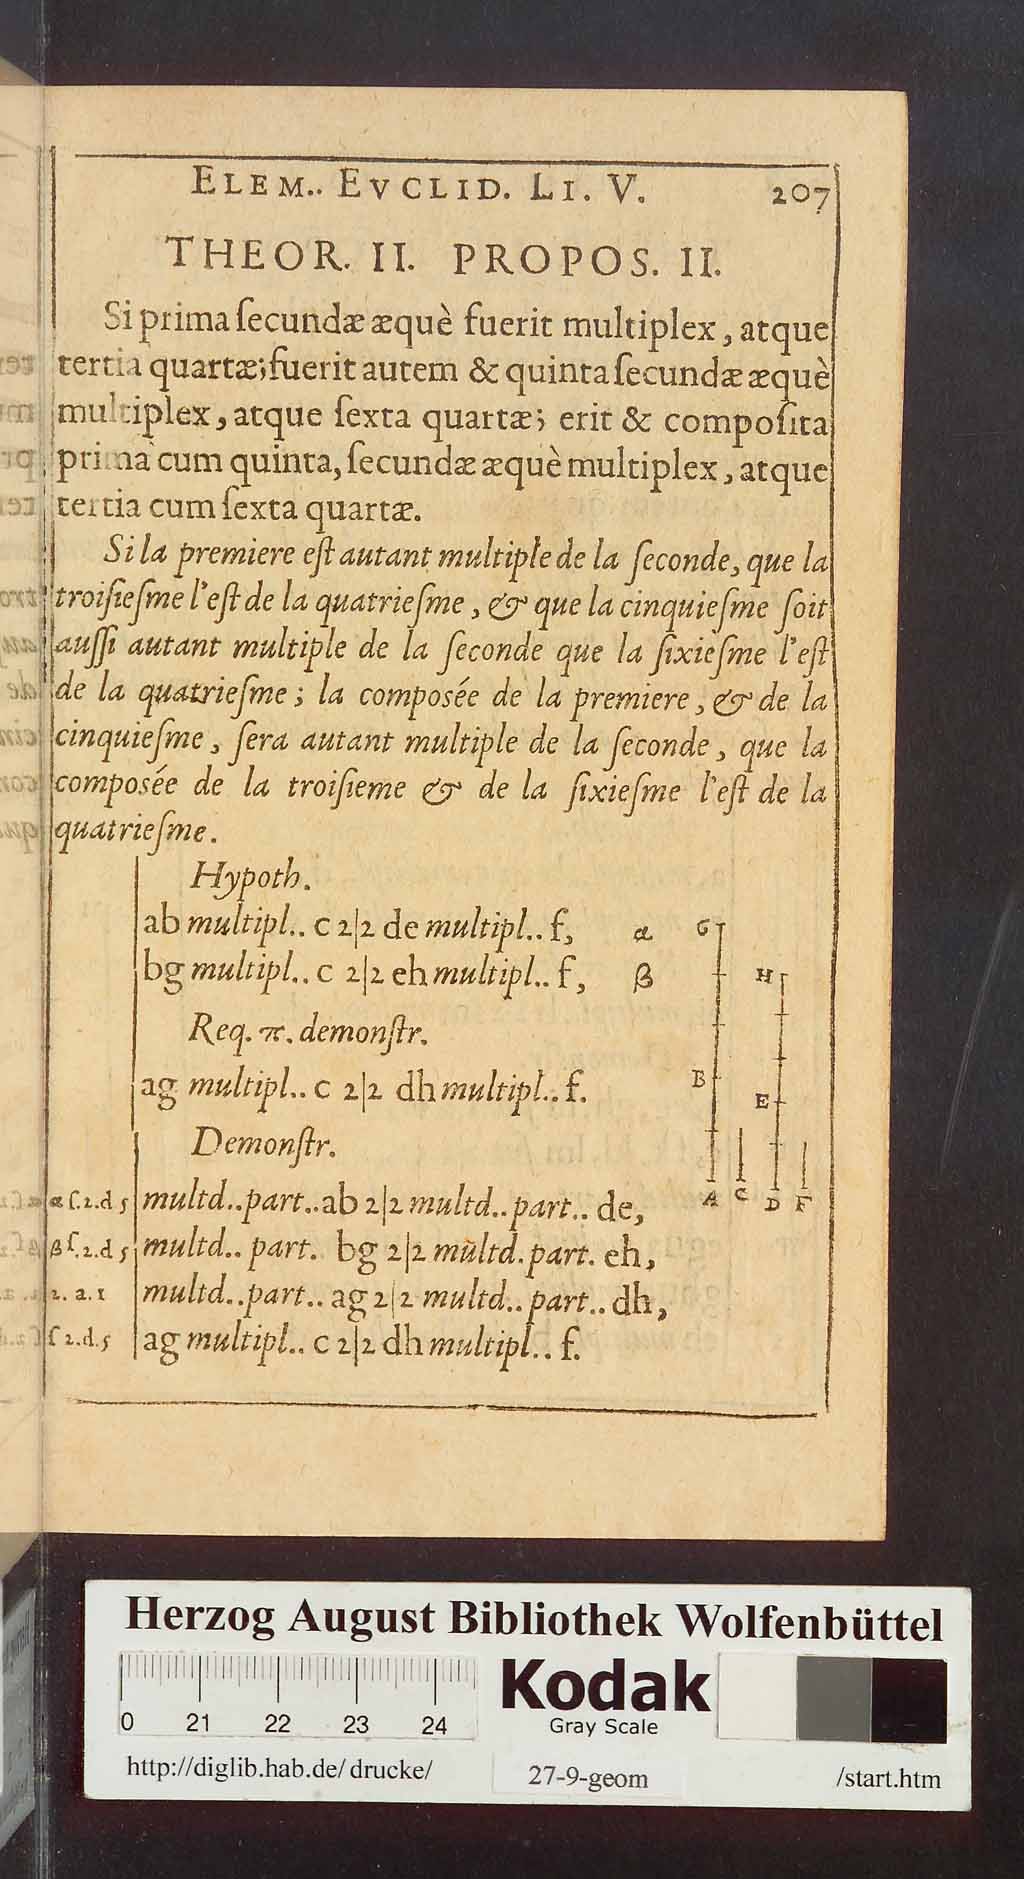 ELEM.. EVCLID. LI. V. 207
THEOR. II. PROPOS. II.
Si prima ſecundæ æquè fuerit multiplex, atque
tertia quartæ; fuerit autem & quinta ſecundæ æquè
multiplex, atque ſexta quartæ; erit & compoſita
prima cum quinta, ſecundæ æquè multiplex, atque
tertia cum ſexta quartæ.
Si la premiere eſt autant multiple de la ſeconde, que la
troiſieſme l'eſt de la quatrieſme, & que la cinquieſme ſoit
auſſi autant multiple de la ſeconde que la ſixieſme l'eſt
de la quatrieſme; la composée de la premiere, & de la
cinquieſme, ſera autant multiple de la ſeconde, que la
composée de la troiſieme & de la ſixieſme l'eſt de la
quatrieſme.
Hypoth.
ab multipl.. c 2|2 de multipl.. f, α
bg multipl.. c 2|2 eh multipl.. f, β
Req. π. demonſtr.
ag multipl.. c 2|2 dh multipl.. f.
Demonſtr.
α ſ.2.d 5 multd..part..ab 2|2 multd..part.. de,
β ſ.2.d 5 multd.. part. bg 2|2 multd.part. eh,
2. a. 1 multd..part.. ag 2|2 multd..part.. dh,
ſ 2.d.5 ag multipl.. c 2|2 dh multipl.. f.
G
H
B
E
A C D F
Herzog August Bibliothek Wolfenbüttel
0 21 22 23 24
Kodak
Gray Scale
http://diglib.hab.de/drucke/ 27-9-geom /start.htm